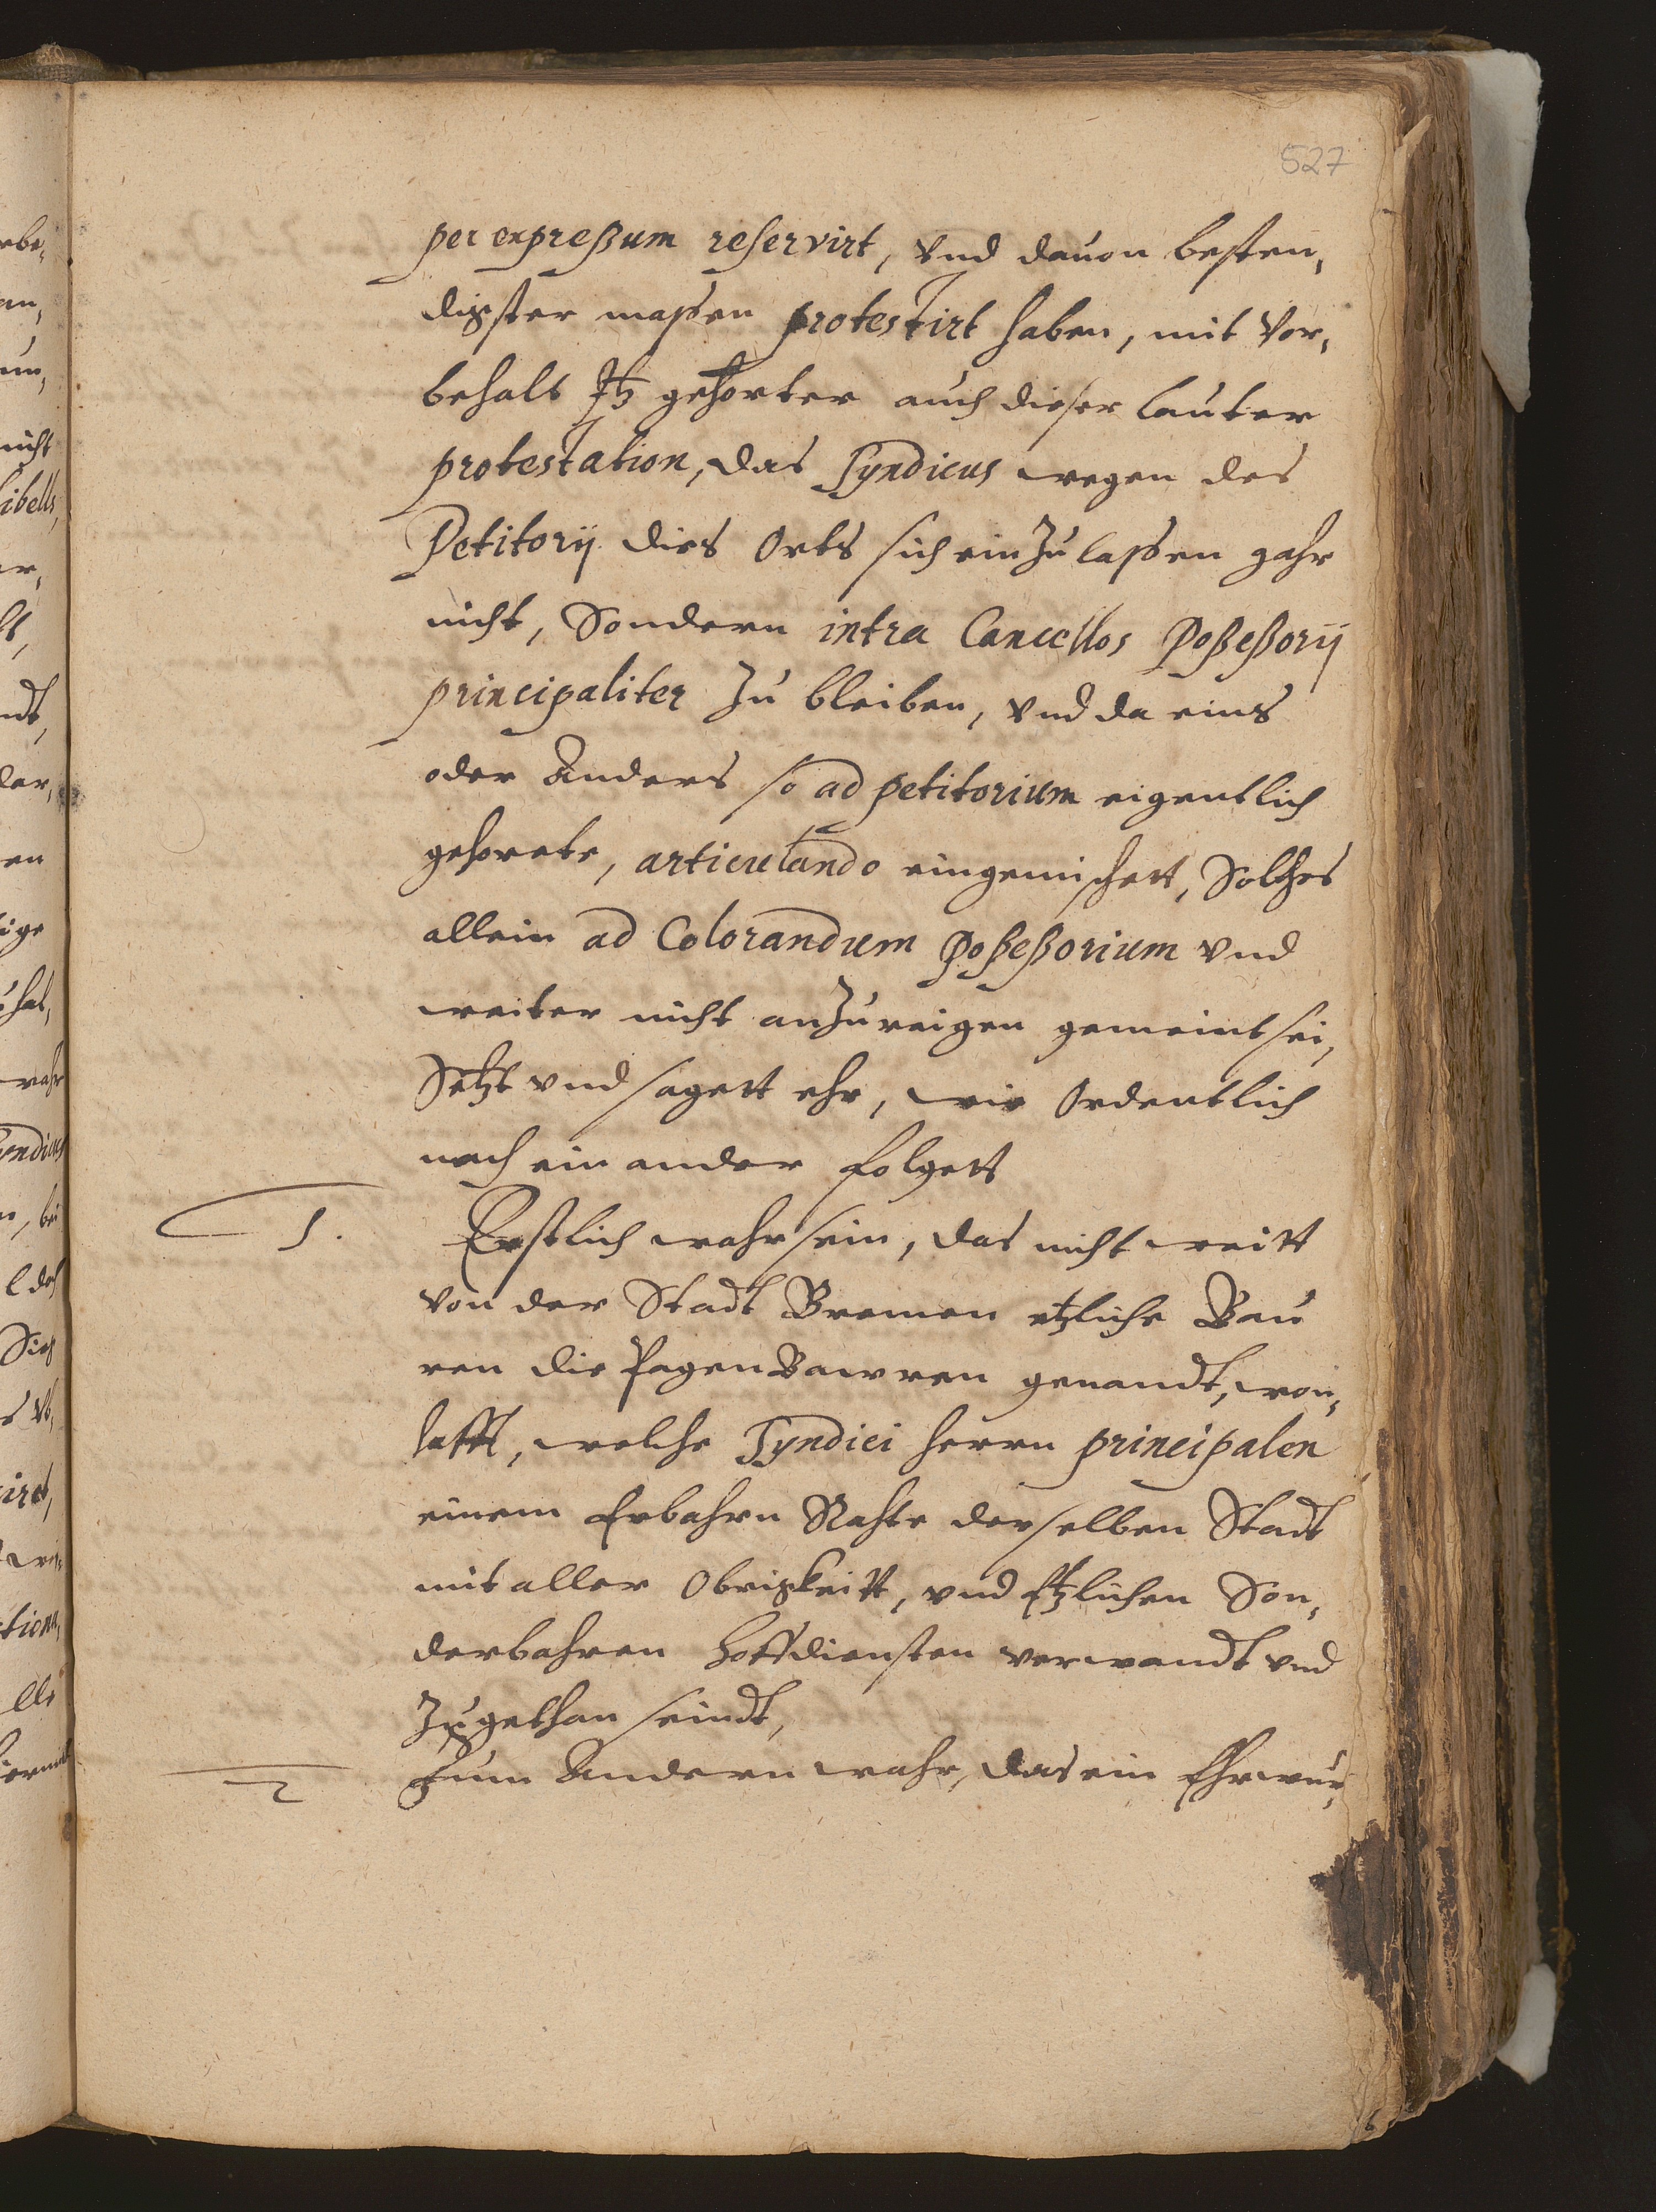 527
per expreßum reservirt, vnd dauon besten,
digster maßen protestirt haben, mit Vor,
behalt Itz gehorter auch dieser lauter
protestation, das Syndicus wegen des
Petitorij dies Orts sich ein Zu laßen gahr
nicht, Sondern intra Cancellos Poßeßorij
principaliter Zu bleiben, vnd da eins
oder Anders so ad petitorium eigentlich
gehorete, articulando eingemischett, Solches
allein ad Colorandum Poßeßorium vnd
weiter nicht anZureigen gemeint sei,
Setzt vnd sagett ehr, wie Ordentlich
nach ein ander folgett
1. Erstlich wahr sein, das nicht weitt
von der Stadt Bremen etzliche Bau
ren die PagenBawren genandt, won,
hafft, welche Syndici herrn principalen
einem Erbahrn Rahte derselben Stadt
mit aller Obrigkeitt, vnd Etzlichen Son,
derbahren hoffdiensten verwandt vnd
Zugethan seindt,
2 Zum Andern wahr, das ein Ehrwur,